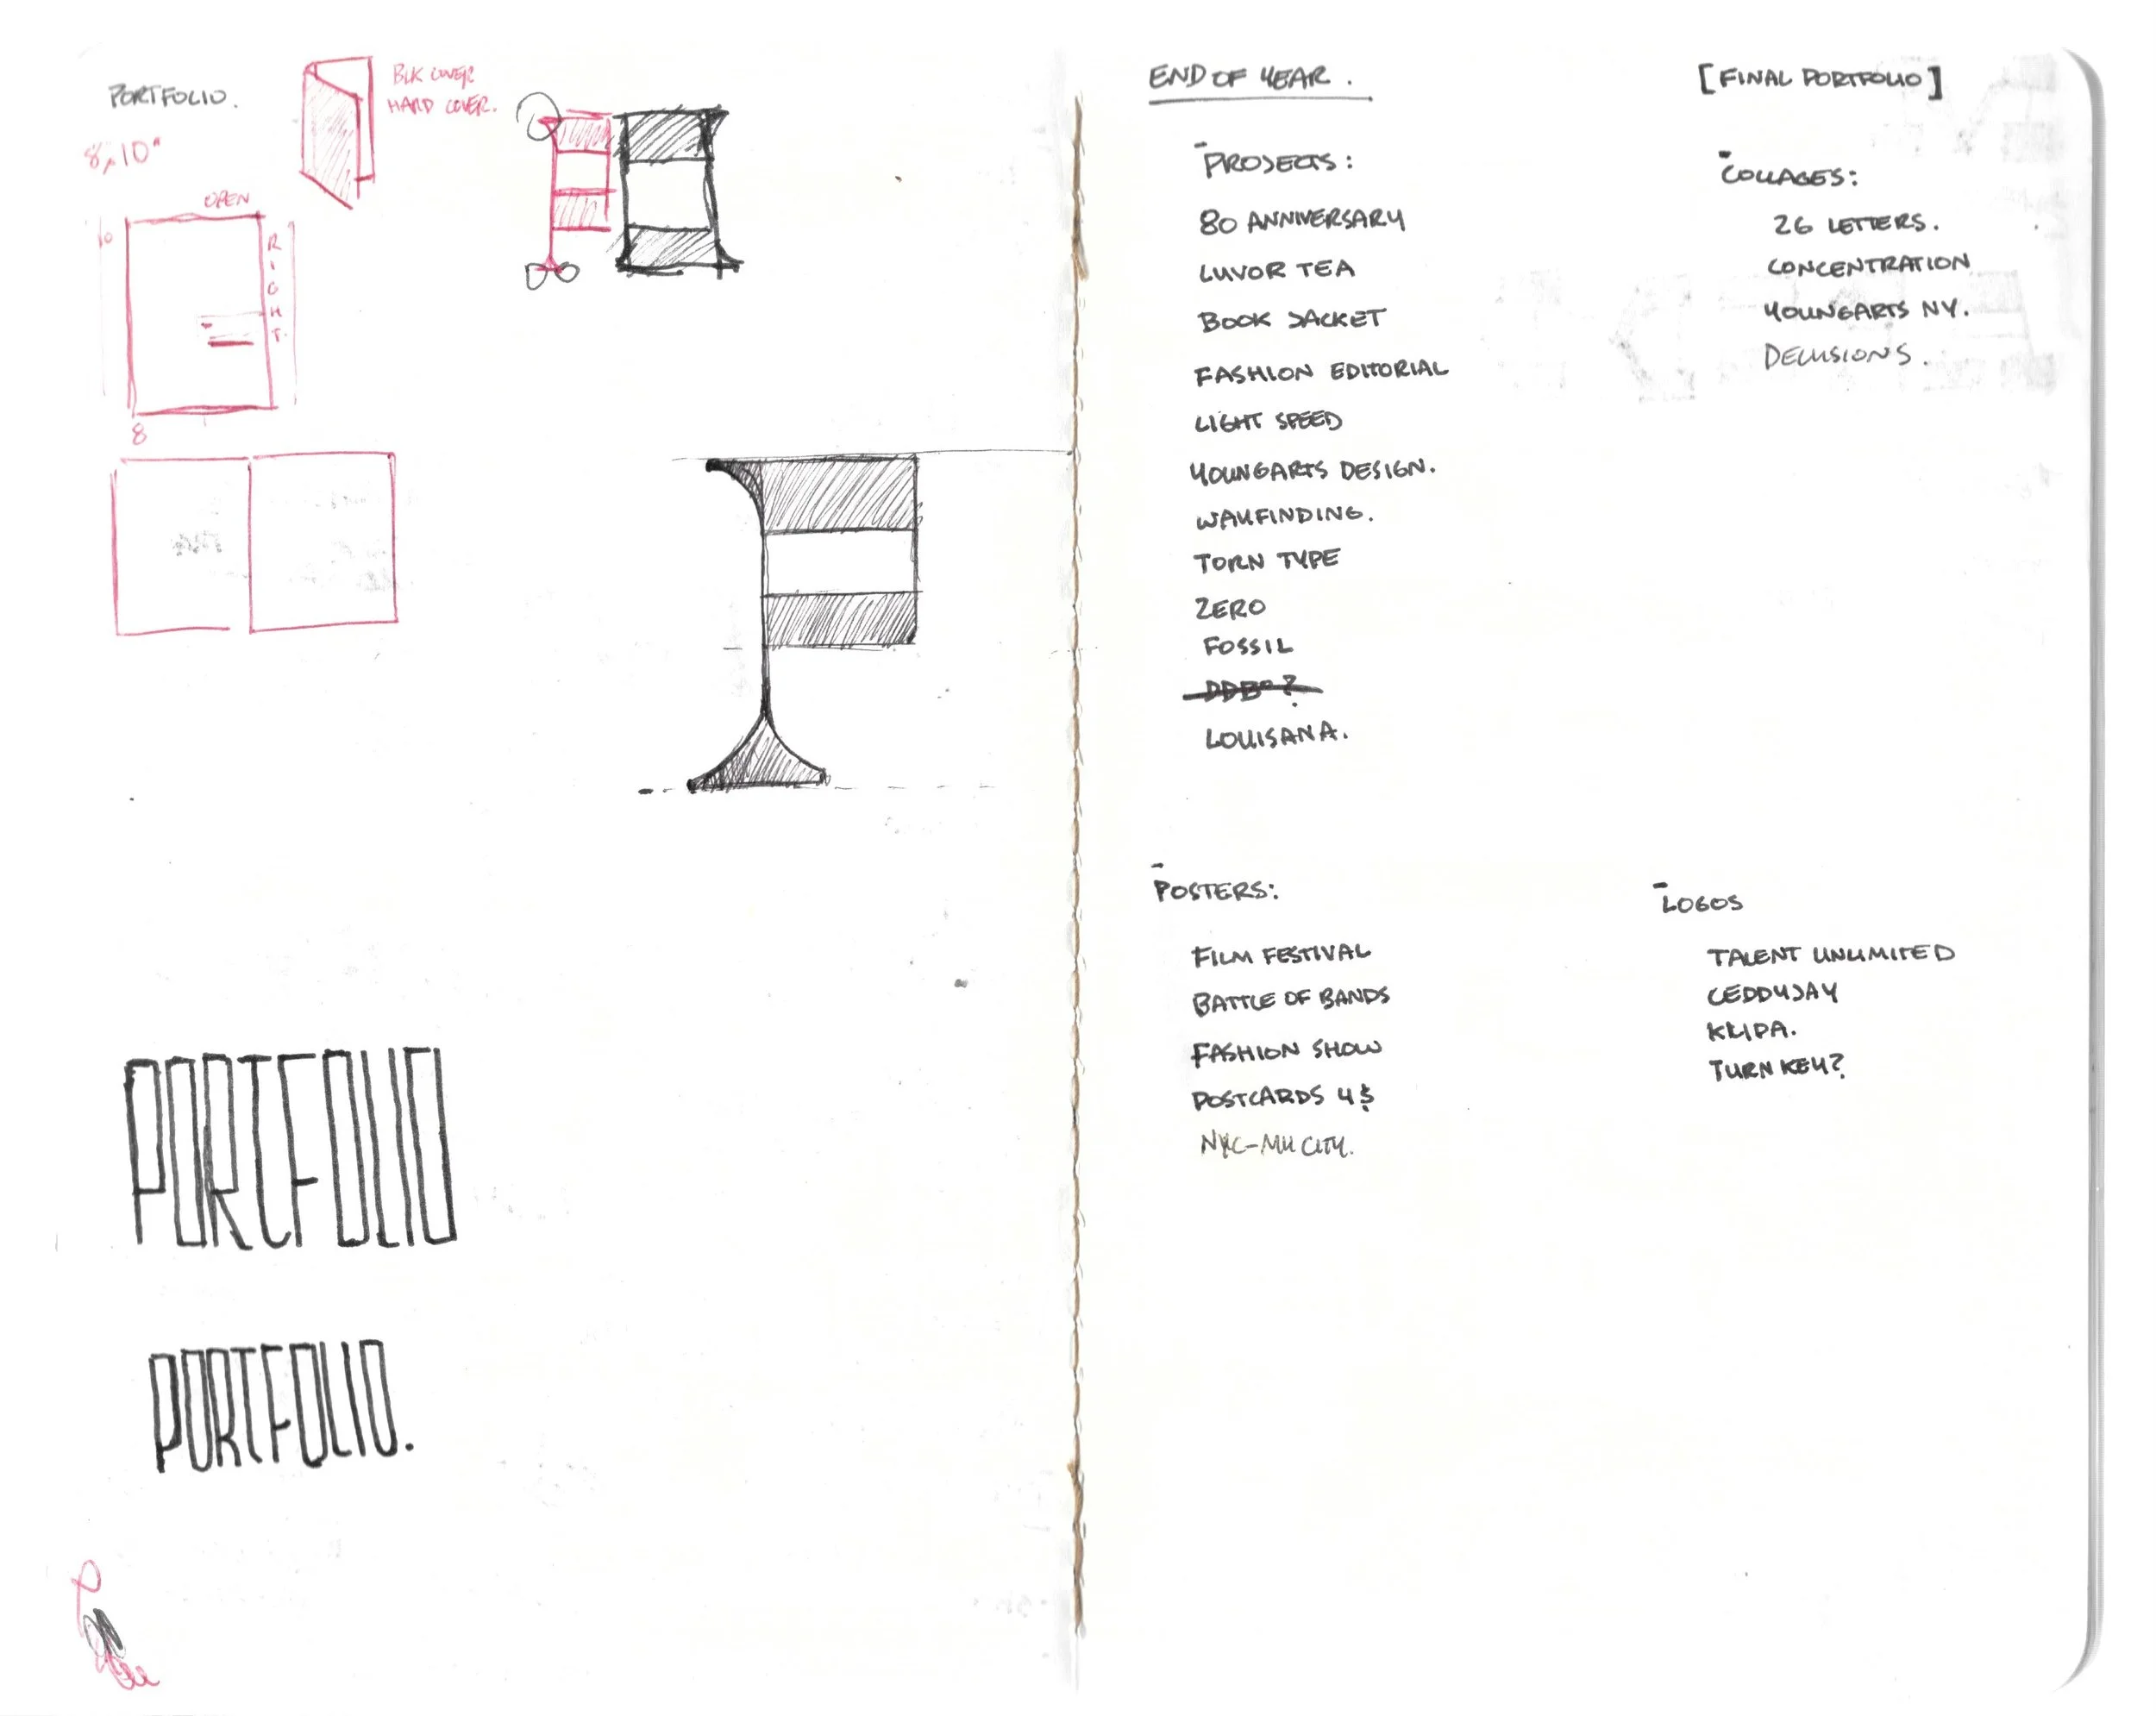 PORTFOLIO.
8x10"
BLK COVER
HARD COVER.
OPEN
10
RIGHT.
8
PORTFOLIO
PORTFOLIO.
END OF YEAR.
[FINAL PORTFOLIO]
- PROJECTS:
80 ANNIVERSARY
LUVOR TEA
BOOK JACKET
FASHION EDITORIAL
LIGHT SPEED
YOUNGARTS DESIGN.
WAYFINDING.
TORN TYPE
ZERO
FOSSIL
DDB?
LOUISANA.
- COLLAGES:
26 LETTERS.
CONCENTRATION
YOUNGARTS NY.
DELUSIONS.
- POSTERS:
FILM FESTIVAL
BATTLE OF BANDS
FASHION SHOW
POSTCARDS
NYC-MY CITY.
- LOGOS
TALENT UNLIMITED
CEDDYJAY
KLIPA.
TURNKEY?